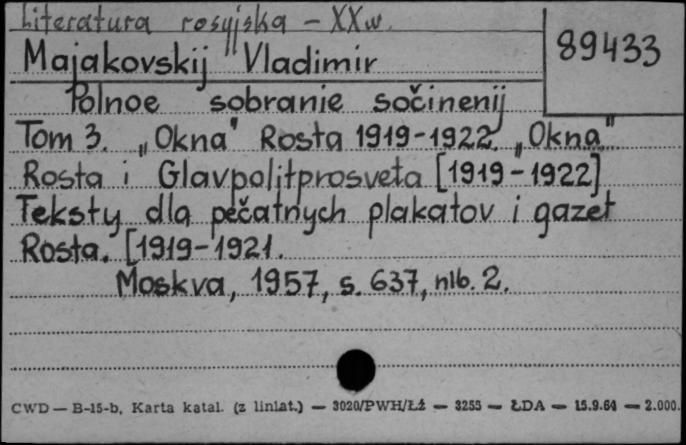 Literatura rosyjska - XX w.
89433
Majakovskij Vladimir
Polnoe sobranie sočinenij
Tom 3. „Okna" Rosta 1919-1922. „Okna"
Rosta i Glavpolitprosveta [1919-1922]
Teksty dla pečatnych plakatov i gazet
Rosta. [1919-1921.
Moskva, 1957, s. 637, nlb. 2.
CWD — B-15-b, Karta katal. (z liniat.) — 3020/PWH/Łż — 3255 — ŁDA — 15.9.64 — 2.000.